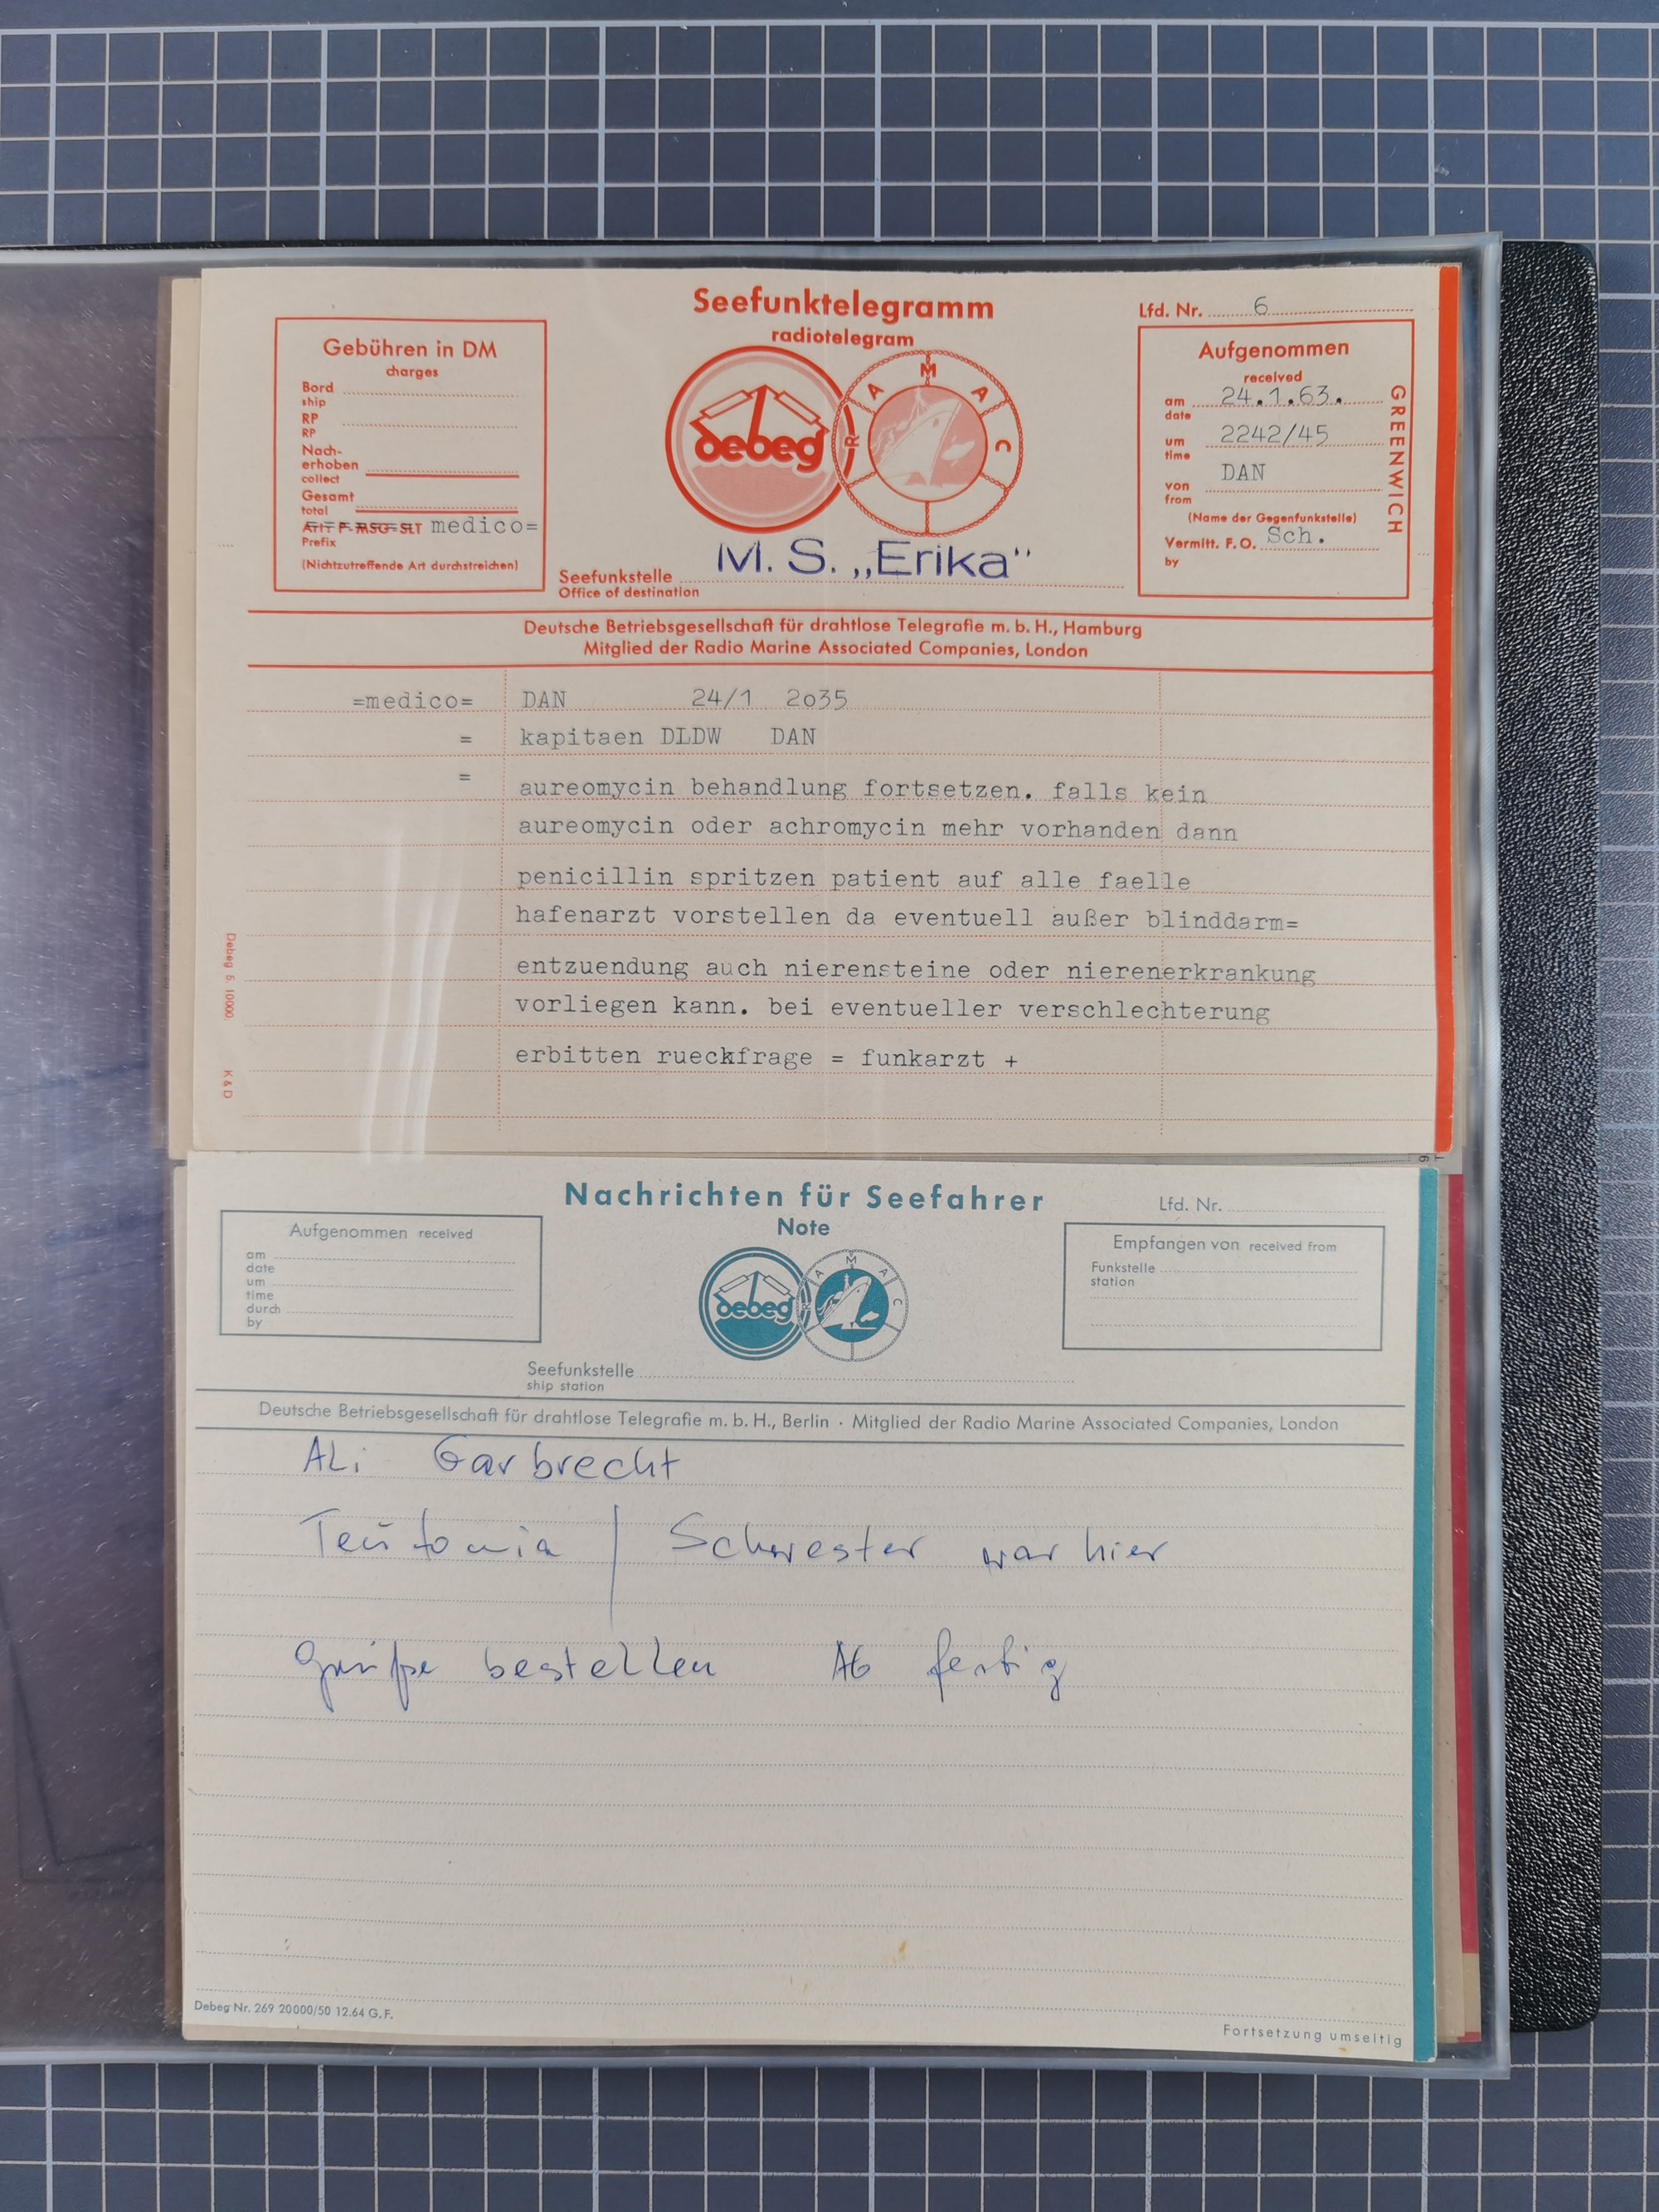 Seefunktelegramm
radiotelegram
Lfd. Nr. 6
Gebühren in DM
charges
Bord
ship
RP
RP
Nach-
erhoben
collect
Gesamt
total
Art P-MSG-SLT medico=
Prefix
(Nichtzutreffende Art durchstreichen)
debeg
RAMAC
M. S. „Erika"
Seefunkstelle
Office of destination
Aufgenommen
received
am 24.1.63.
date
um 2242/45
time
von DAN
from
(Name der Gegenfunkstelle)
Vermitt. F. O. Sch.
by
GREENWICH
Deutsche Betriebsgesellschaft für drahtlose Telegrafie m. b. H., Hamburg
Mitglied der Radio Marine Associated Companies, London
=medico= DAN 24/1 2o35
= kapitaen DLDW DAN
=
aureomycin behandlung fortsetzen. falls kein
aureomycin oder achromycin mehr vorhanden dann
penicillin spritzen patient auf alle faelle
hafenarzt vorstellen da eventuell außer blinddarm=
entzuendung auch nierensteine oder nierenerkrankung
vorliegen kann. bei eventueller verschlechterung
erbitten rueckfrage = funkarzt +
Debeg 5 10000. K & D
Nachrichten für Seefahrer
Note
Lfd. Nr.
Aufgenommen received
am
date
um
time
durch
by
debeg
RAMAC
Empfangen von received from
Funkstelle
station
Seefunkstelle
ship station
Deutsche Betriebsgesellschaft für drahtlose Telegrafie m. b. H., Berlin · Mitglied der Radio Marine Associated Companies, London
ALi Garbrecht
Teutonia | Schwester war hier
Grüße bestellen Ab fertig
Debeg Nr. 269 20000/50 12.64 G. F.
Fortsetzung umseitig